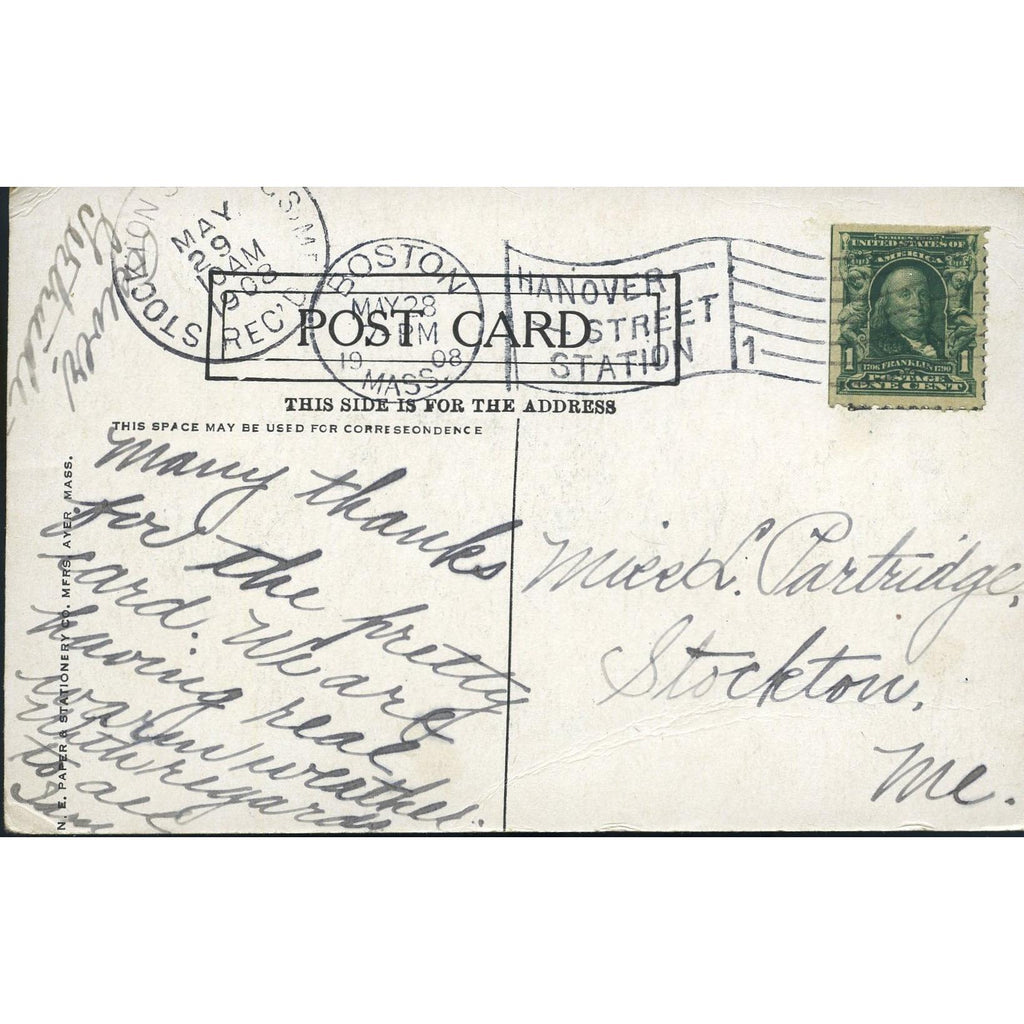 STOCKTON SPRINGS, ME.
MAY
29
10 AM
1908
REC'D.
BOSTON
MAY 28
PM
1908
MASS.
HANOVER
STREET
STATION
1
SERIES 1902
UNITED STATES OF
AMERICA
1 1
1706 FRANKLIN 1790
POSTAGE
ONE CENT
POST CARD
THIS SIDE IS FOR THE ADDRESS
THIS SPACE MAY BE USED FOR CORRESEONDENCE
Many thanks
for the pretty
card. We are
having real
warm weather.
With regards
to all
Gertrude
Miss L. Partridge,
Stockton,
Me.
N. E. PAPER & STATIONERY CO. MFRS. AYER, MASS.